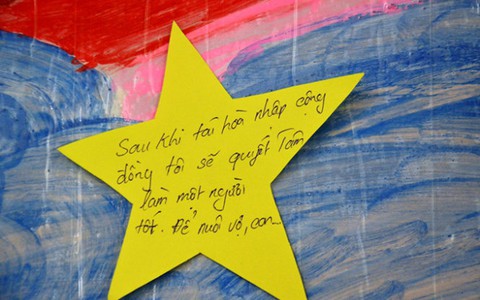 Sau khi tái hoà nhập cộng
đồng tôi sẽ quyết Tâm
làm một người
tốt. Để nuôi vợ, con